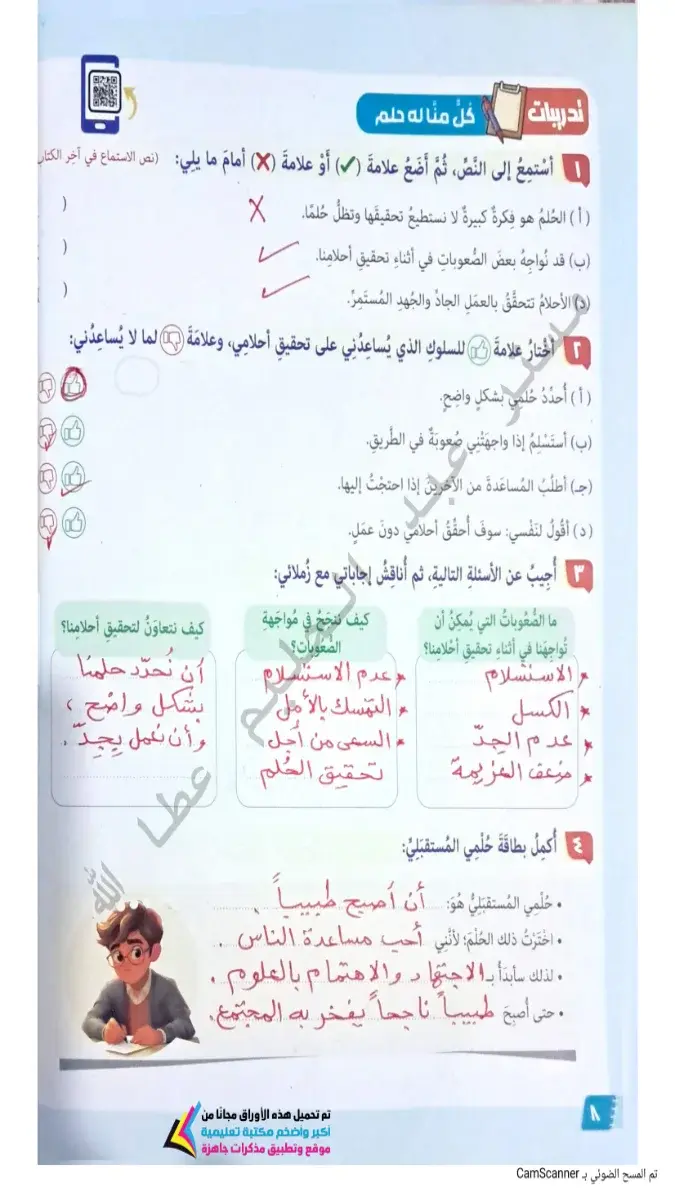 تدريبات
كُلٌّ منَّا له حلم
١ أَسْتمِعُ إلى النَّصِّ، ثُمَّ أَضَعُ علامةَ (✓) أَوْ علامةَ (✗) أمامَ ما يلِي: (نص الاستماع في آخِر الكتا
( أ ) الحُلمُ هو فِكرةٌ كبيرةٌ لا نستطيعُ تحقيقَها وتظلُّ حُلمًا. ✗ (
(ب) قد نُواجِهُ بعضَ الصُّعوباتِ في أثناءِ تحقيقِ أحلامِنا. ✓ (
(د) الأحلامُ تتحقَّقُ بالعمَلِ الجادِّ والجُهدِ المُستمِرِّ. ✓ (
٢ أَخْتارُ علامةَ 👍 للسلوكِ الذي يُساعدُنِي على تحقيقِ أحلامِي، وعلامَةَ 👎 لما لا يُساعِدُني:
( أ ) أُحدِّدُ حُلمِي بشكلٍ واضِحٍ.
(ب) أستَسْلِمُ إذا واجهَتْنِي صُعوبَةٌ في الطَّريقِ.
(جـ) أطلُبُ المُساعَدةَ من الآخَرينَ إذا احتجْتُ إليها.
( د ) أقُولُ لنَفْسِي: سوفَ أُحقِّقُ أحلامِي دونَ عمَلٍ.
٣ أُجِيبُ عن الأسئلةِ التاليةِ، ثم أُناقِشُ إجاباتي مع زُملائي:
ما الصُّعُوباتُ التي يُمكِنُ أن
تُواجِهَنا في أثناءِ تحقيقِ أحْلامِنا؟
* الاستسلام
* الكسل
* عدم الجِدّ
* ضعف العزيمة
كيفَ ننجَحُ في مُواجَهةِ
الصُّعُوباتِ؟
* عدم الاستسلام
* التمسك بالأمل
* السعى من أجل
تحقيق الحُلم
كيف نتعاوَنُ لتحقيقِ أحلامِنا؟
أن نُحدّد حلمنا
بشكل واضح ،
وأن نعمل بِجِدّ .
٤ أُكمِلُ بطاقَةَ حُلْمِي المُستقبَلِيِّ:
• حُلْمِي المُستقبَلِيُّ هُوَ: أن أصبح طبيباً .
• اخْتَرْتُ ذلك الحُلْمَ؛ لأنَّنِي أحب مساعدة الناس .
• لذلك سأبدَأُ بـ الاجتهاد والاهتمام بالعلوم .
• حتى أُصبِحَ طبيباً ناجحاً يفخر به المجتمع.
مستر عبد العليم عطا الله
٨
تم تحميل هذه الأوراق مجانًا من
أكبر واضخم مكتبة تعليمية
موقع وتطبيق مذكرات جاهزة
تم المسح الضوئي بـ CamScanner